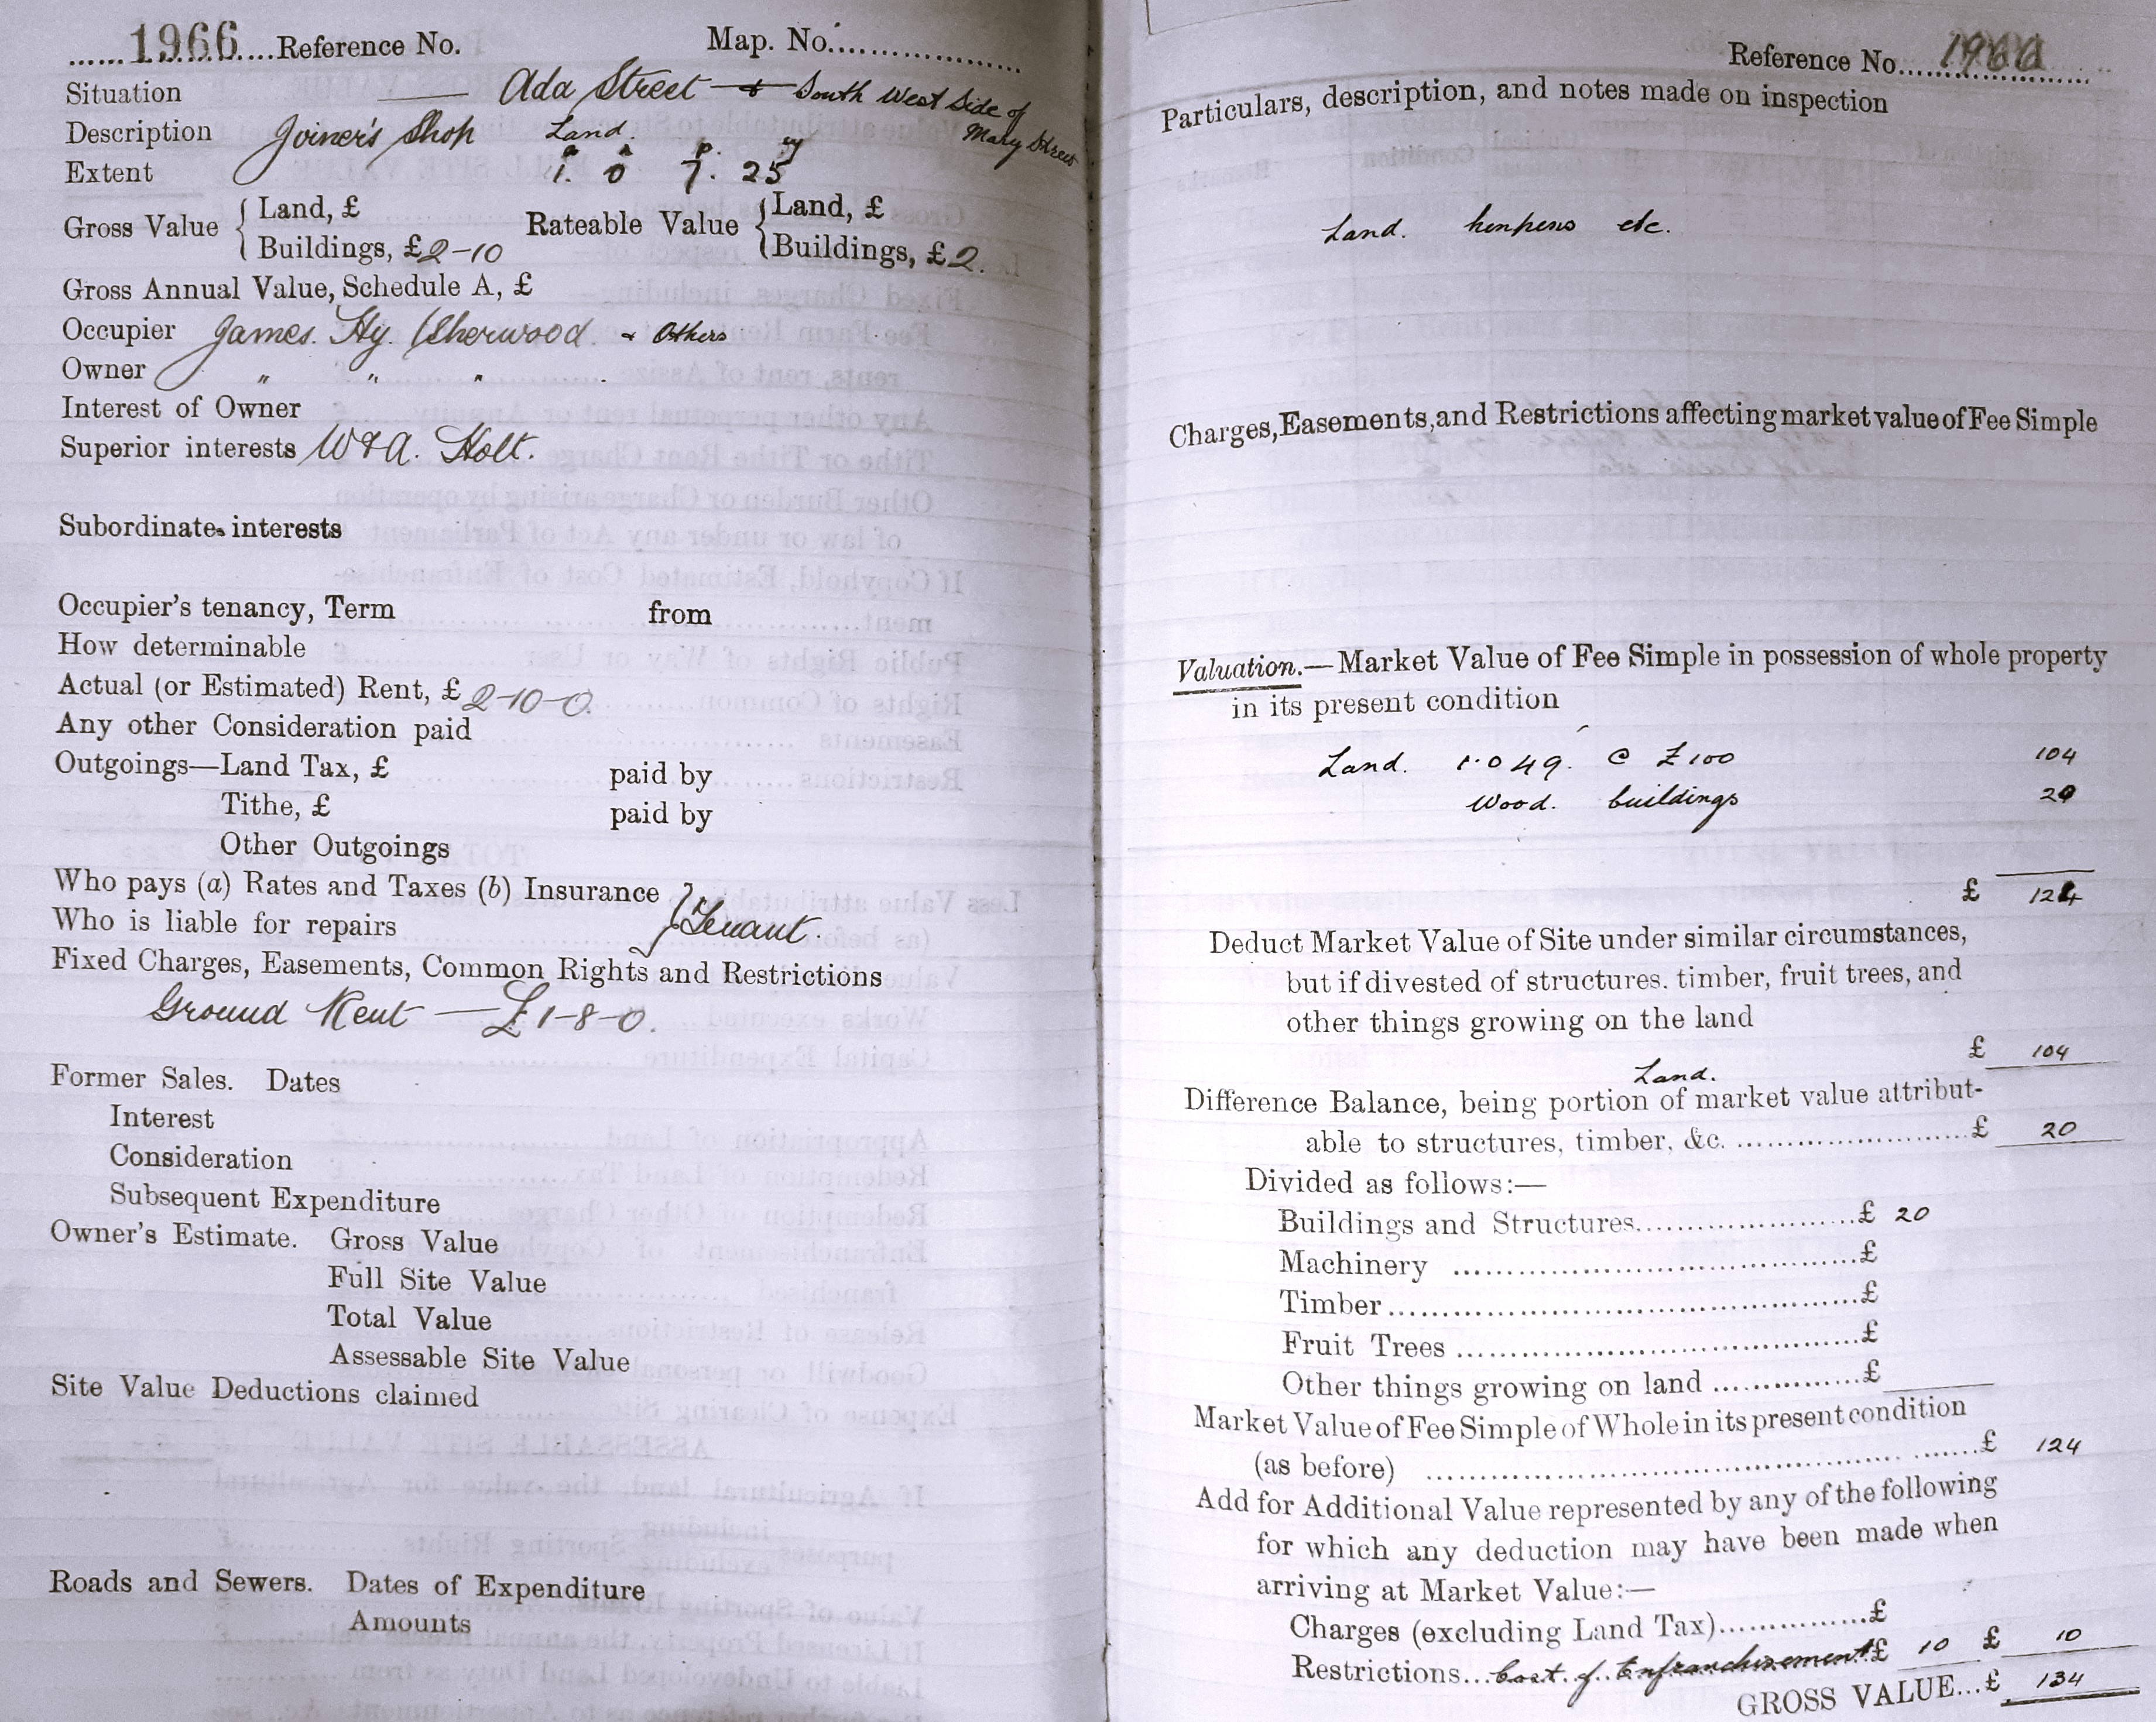 ......1966....Reference No. Map. No................
Situation —— Ada Street + South West Side of
Mary Street
Description Joiner's Shop Land.
a r p. y
Extent 1. 0 7. 25
Gross Value { Land, £ Rateable Value { Land, £
Buildings, £2-10 Buildings, £2.
Gross Annual Value, Schedule A, £
Occupier James. Hy. Sherwood. & Others
Owner " " " .
Interest of Owner
Superior interests W & A. Holt.
Subordinate interests
Occupier's tenancy, Term from
How determinable
Actual (or Estimated) Rent, £2-10-0.
Any other Consideration paid
Outgoings—Land Tax, £ paid by
Tithe, £ paid by
Other Outgoings
Who pays (a) Rates and Taxes (b) Insurance } Tenant.
Who is liable for repairs
Fixed Charges, Easements, Common Rights and Restrictions
Ground Rent — £1-8-0.
Former Sales. Dates
Interest
Consideration
Subsequent Expenditure
Owner's Estimate. Gross Value
Full Site Value
Total Value
Assessable Site Value
Site Value Deductions claimed
Roads and Sewers. Dates of Expenditure
Amounts
Reference No....1966
Particulars, description, and notes made on inspection
Land. henpens etc.
Charges, Easements, and Restrictions affecting market value of Fee Simple
Valuation.—Market Value of Fee Simple in possession of whole property
in its present condition
Land. 1.049. @ £100 104
Wood. buildings 20
£ 124
Deduct Market Value of Site under similar circumstances,
but if divested of structures. timber, fruit trees, and
other things growing on the land
£ 104
Land.
Difference Balance, being portion of market value attribut-
able to structures, timber, &c. ........................£ 20
Divided as follows:—
Buildings and Structures......................£ 20
Machinery ........................................£
Timber...............................................£
Fruit Trees ........................................£
Other things growing on land ...............£
Market Value of Fee Simple of Whole in its present condition
(as before) ........................................................£ 124
Add for Additional Value represented by any of the following
for which any deduction may have been made when
arriving at Market Value:—
Charges (excluding Land Tax)...............£
Restrictions...Cost of Enfranchisement £ 10 £ 10
GROSS VALUE...£ 134